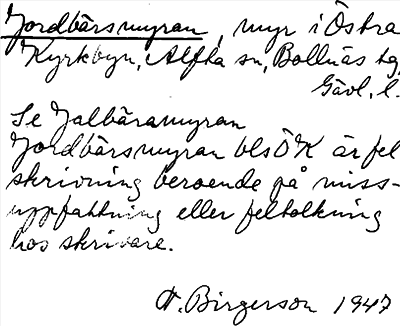 Jordbärsmyran, myr i Östra
Kyrkbyn, Alfta sn, Bollnäs tg,
Gävl. l.
Se Jalbäramyran
Jordbärsmyran bls ÖK är fel
skrivning beroende på miss-
uppfattning eller feltolkning
hos skrivare.
N. Birgerson 1947